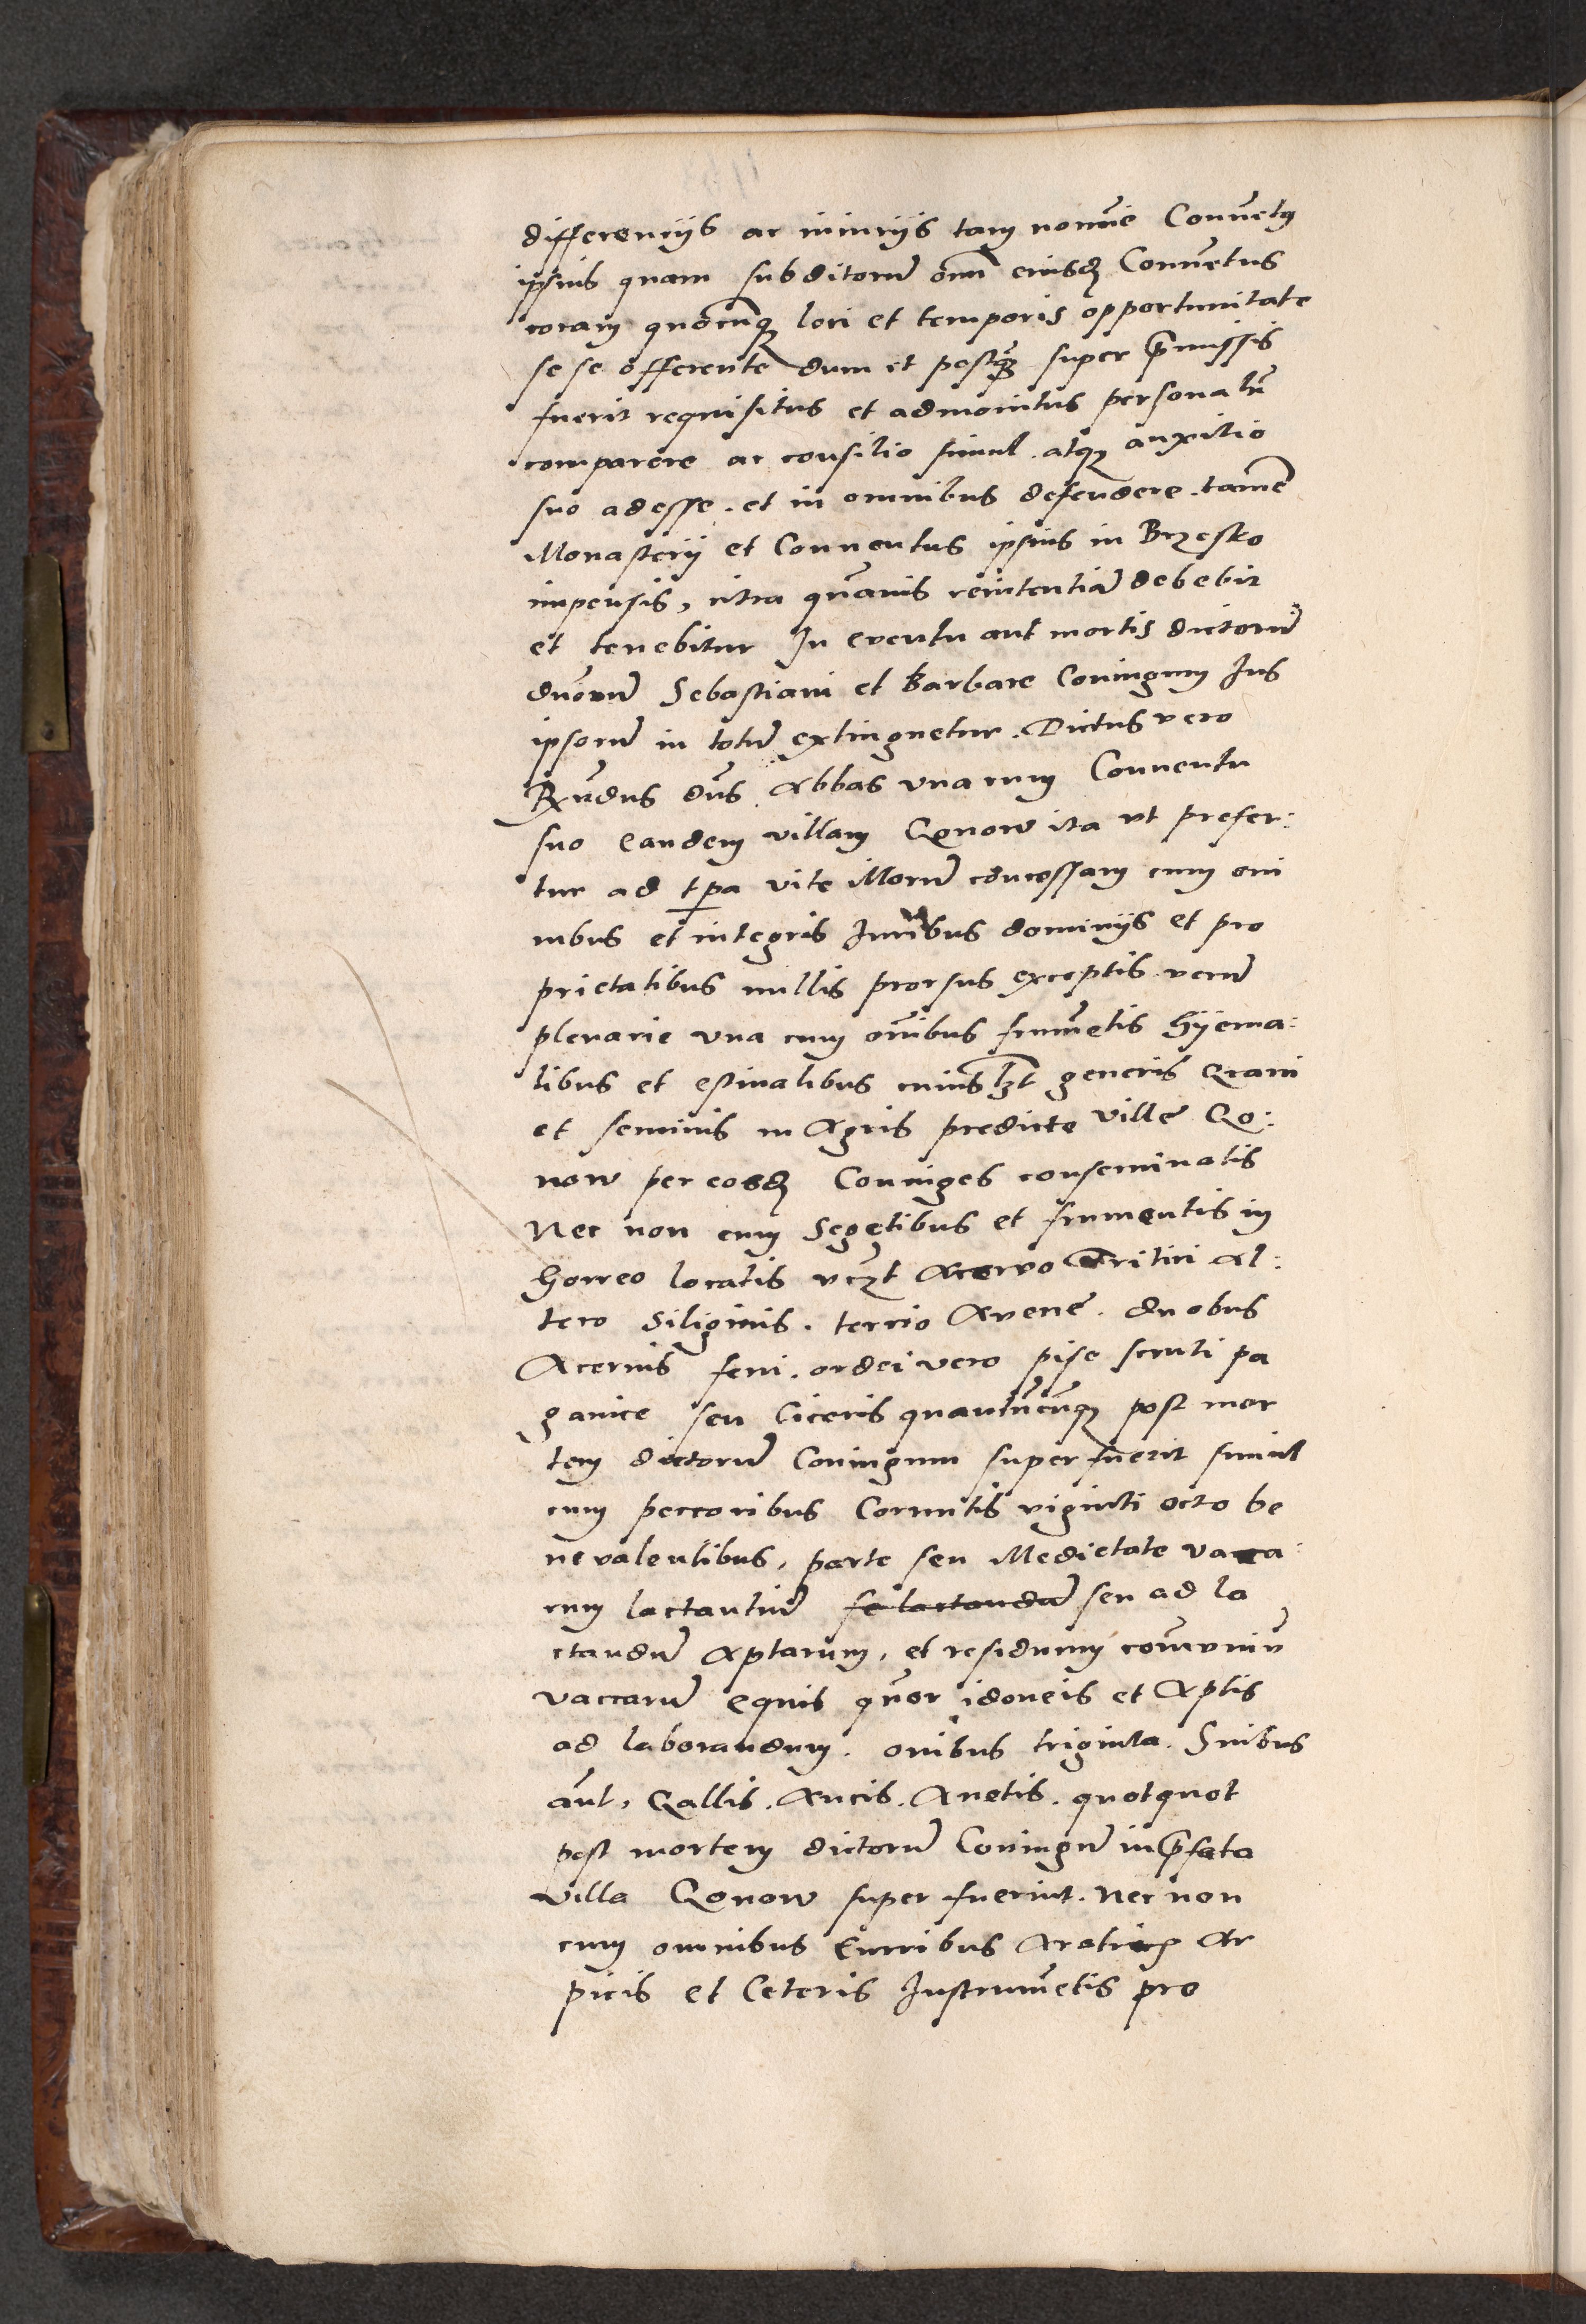 differencijs ac iniurijs tam nomīe Conuētus
ipsius quam subditorū om̄ eiusdē Conuētus
coram quocūq loci et temporis opportunitate
sese offerente dum et postq̄ super p̄missis
fuerit requisitus et admonitus personalr̄
comparere ac consilio simul atq auxilio
suo adesse . et in omnibus defendere . tamē
Monasterij et Conuentus ipsius in Brzesko
impensis, citra quāuis renitentiā debebit
et tenebitur In euentu aut mortis dictorū
duorū Sebastiani et Barbare Coniugum Ius
ipsorū in totū extinguetur . Dictus vero
Rn̄dus dn̄s Abbas vna cum Conuentu
suo eandem villam Gonow ita vt prefer:
tur ad tp̄a vite illorū concessam cum om̄
nibus et integris Iuribus dominijs et pro
prietatibus nullis prorsus exceptis verū
plenarie vna cum om̄ibus frumētis hyema:
libus et estiualibus cuiuslȝt generis Grani
et seminis in Agris predicte ville Go:
now per eosdē Coniuges conseminatis
Nec non cum Segetibus et frumentis in
horreo locatis vcȝt Aceruo Tritici Al:
tero Siliginis . tercio Auene . duobus
Aceruis feni . ordei vero pise scruti pa
ganice seu Ciceris quantūcūq post mor
tem dictorū Coniugum superfuerit simul
cum peccoribus Cornutis viginti octo be
ne valentibus, parte seu Medietate vacca:
rum lactantiū se lactandū seu ad la
ctandū Aptarum, et residuum com̄vniū
vaccarū equis qūor idoneis et Aptis
ad laborandum . ouibus triginta . Suibus
aūt, Gallis . Aucis . Anetis . quotquot
post mortem dictorū Coniugū in p̄fata
villa Gonow super fuerint . Nec non
cum omnibus Curribus Aratris Ar
picis et Ceteris Instrumētis pro